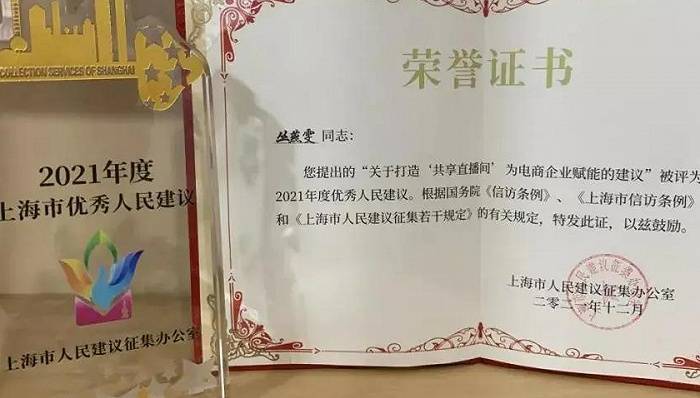 COLLECTION SERVICES OF SHANGHAI
2021年度
上海市优秀人民建议
上海市人民建议征集办公室
荣誉证书
丛燕雯 同志：
您提出的“关于打造‘共享直播间’为电商企业赋能的建议”被评为
2021年度优秀人民建议。根据国务院《信访条例》、《上海市信访条例》
和《上海市人民建议征集若干规定》的有关规定，特发此证，以兹鼓励。
上海市人民建议征集办公室
二零二一年十二月